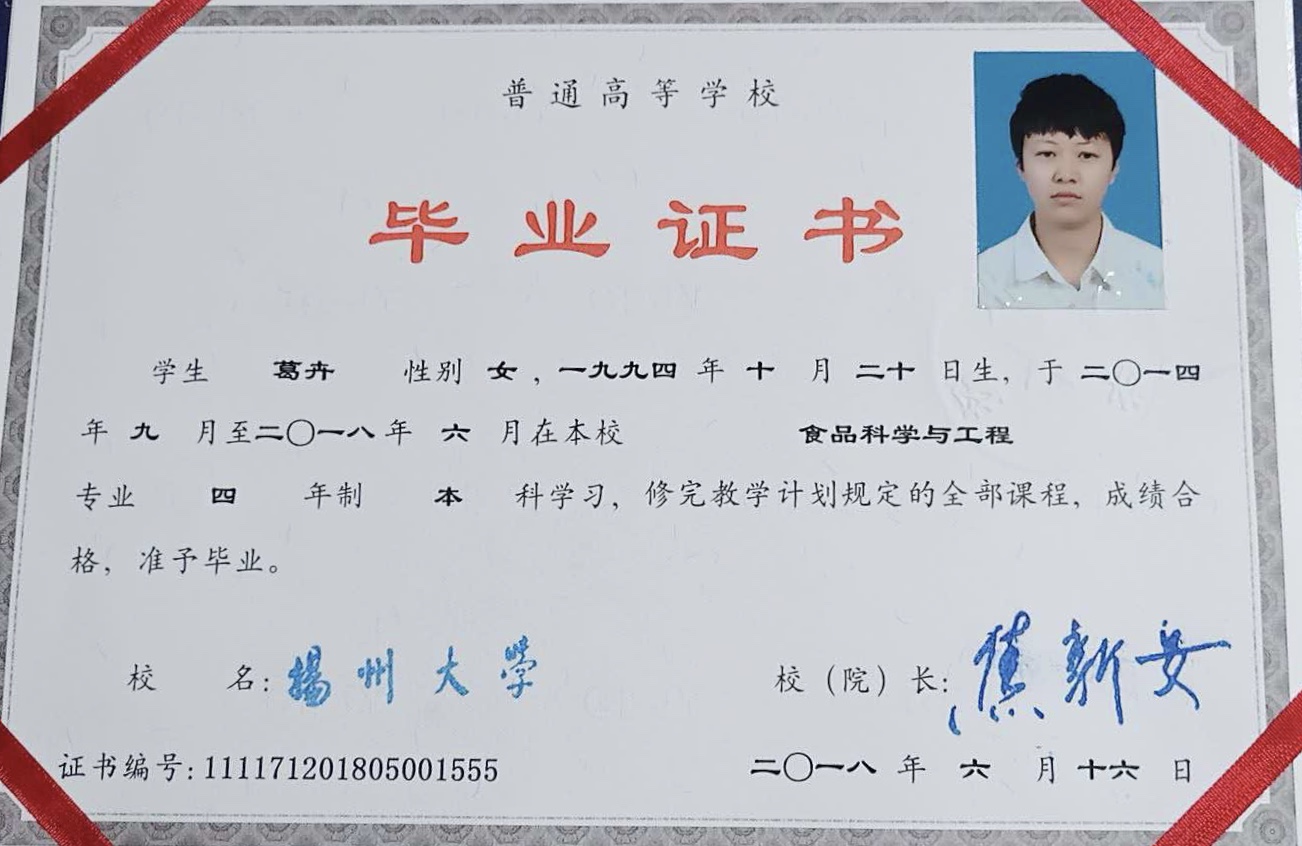 普通高等学校
毕业证书
学生 葛卉 性别 女，一九九四 年 十 月 二十 日生，于 二〇一四
年 九 月至二〇一八年 六 月在本校 食品科学与工程
专业 四 年制 本 科学习，修完教学计划规定的全部课程，成绩合
格，准予毕业。
校 名：揚州大學 校（院）长：焦新安
证书编号：111171201805001555 二〇一八 年 六 月 十六 日